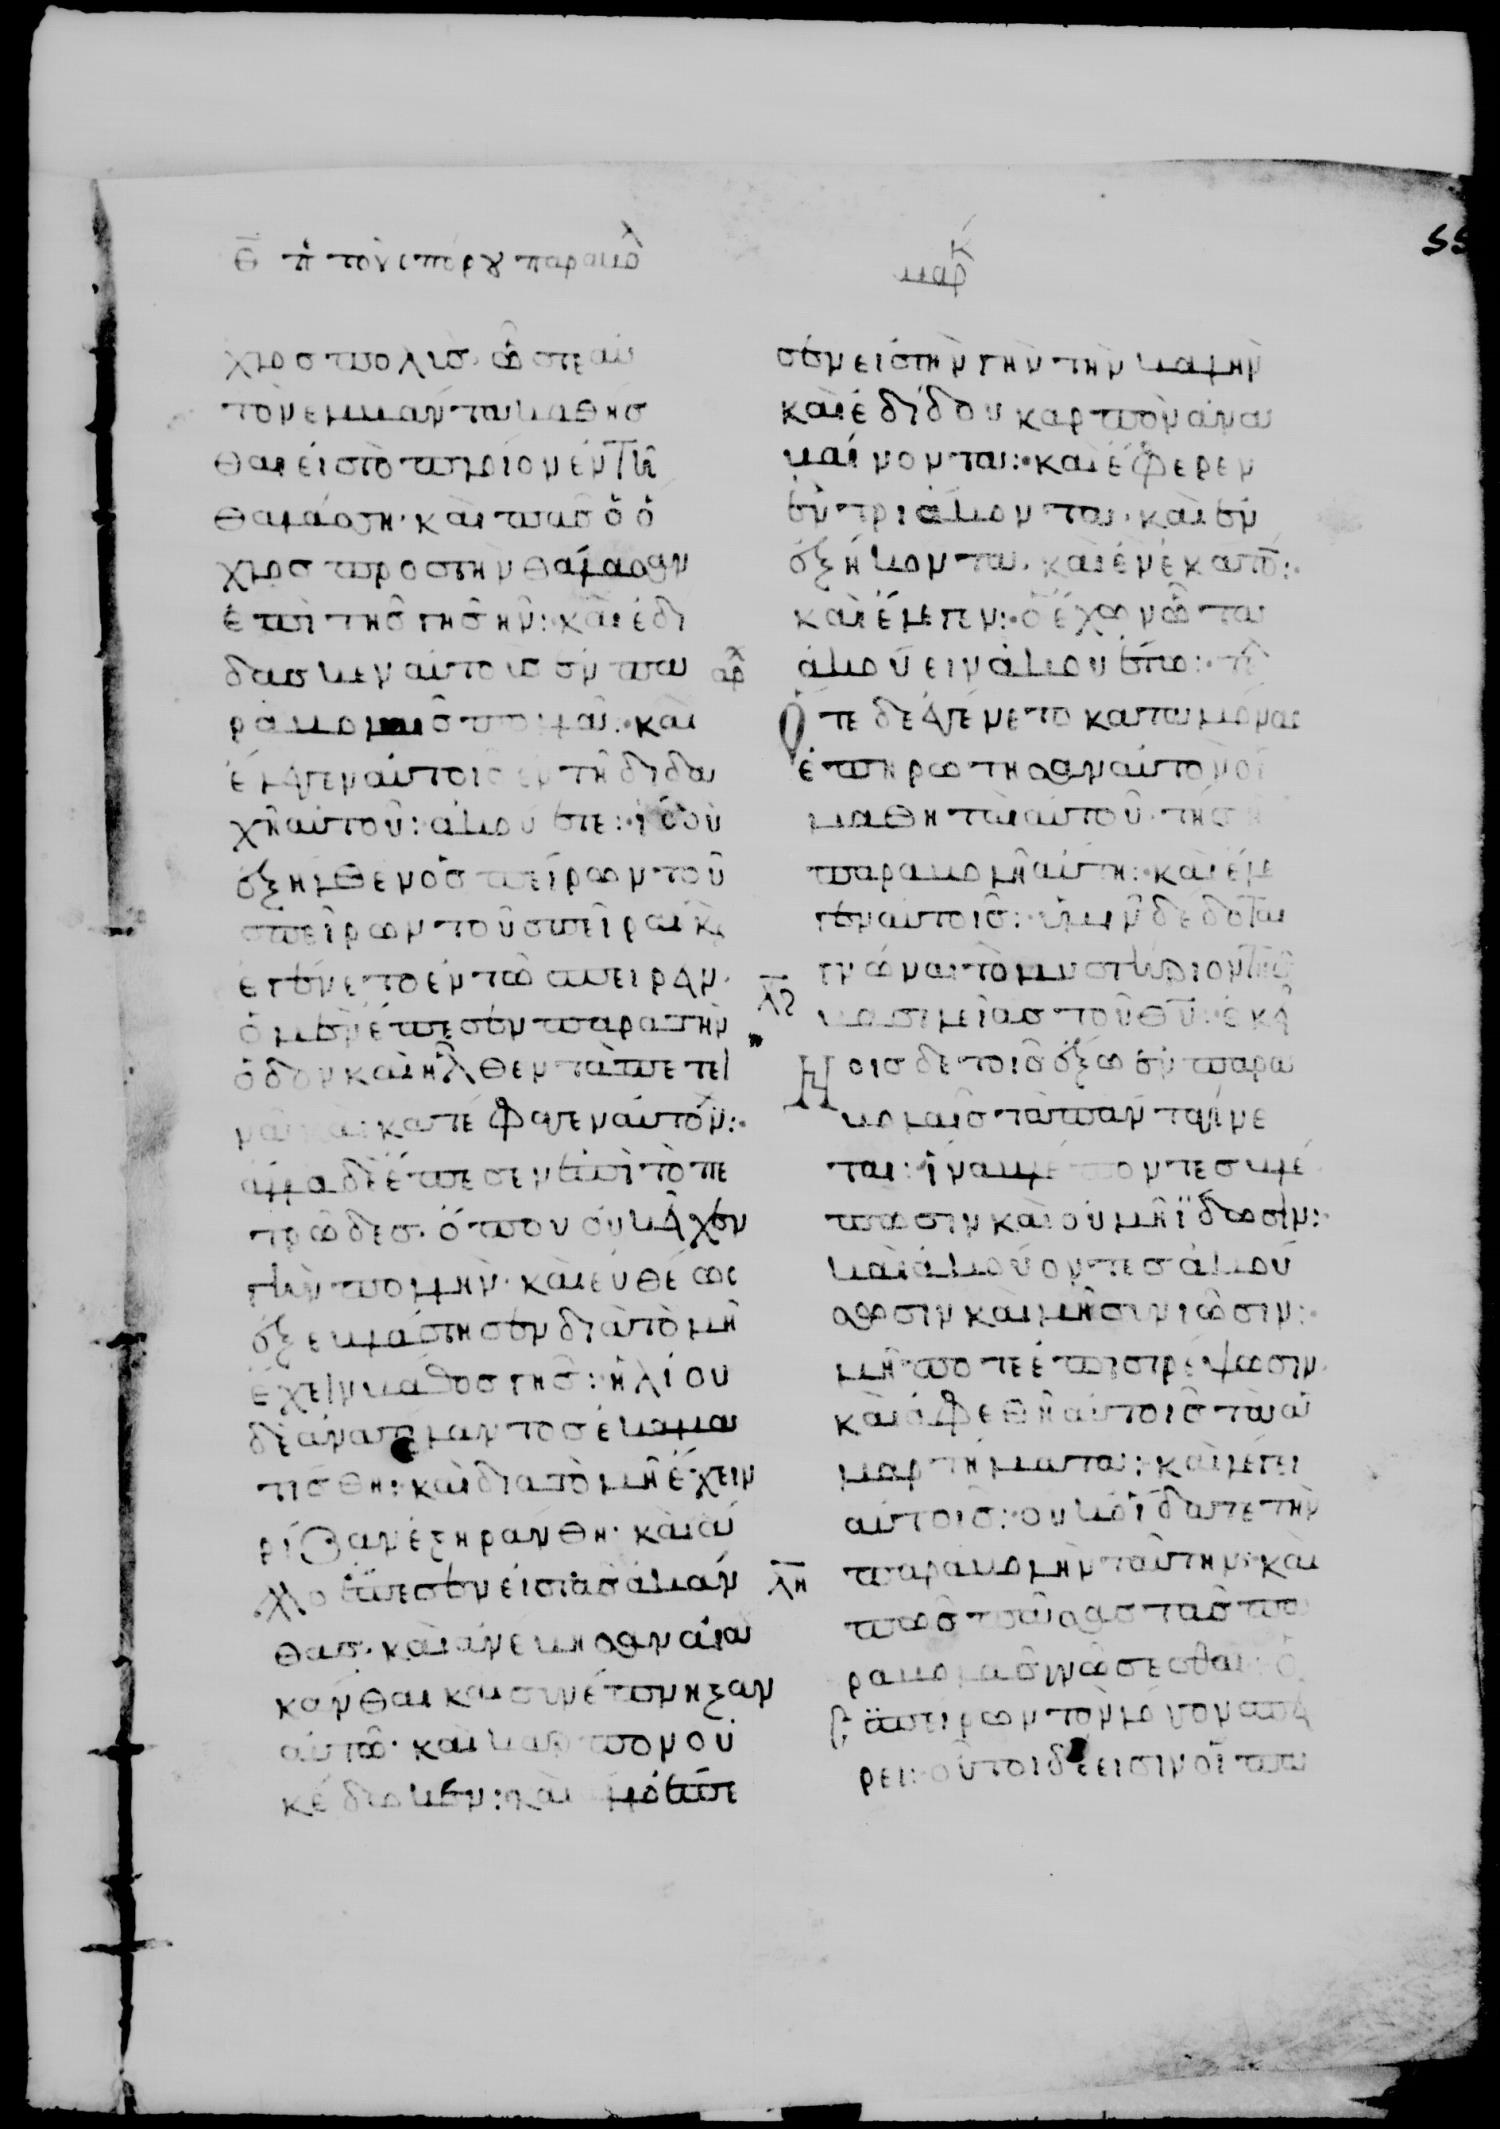 θ̅ π̀ τοῦ σπόρου παραβολ
μαρκ
χλος πολὺς· ὥστε αὐ
τὸν ἐμβάντα καθῆσ
θαι εἰς τὸ πλοῖον ἐν τῆ
θαλάσση· καὶ πᾶς ὁ ὄ
χλος πρὸς τὴν θάλασσαν
ἐπὶ τῆς γῆς ἦν: καὶ ἐδί
δασκεν αὐτοὺς ἐν πα
ραβολαῖς πολλαῖ: καὶ
ἔλεγεν αὐτοῖς ἐν τῆ διδα
χῆ αὐτοῦ: ἀκούετε: ἰδοὺ
ἐξῆλθεν ὁ σπείρων τοῦ
σπείρων τοῦ σπεῖραι κ
ἐγένετο ἐν τῶ σπείρειν·
ὃ μὲν ἔπεσεν παρὰ τὴν
ὁδὸν καὶ ἦλθεν τὰ πετει
νὰ καὶ κατέφαγεν αὐτόν:
ἄλλο δὲ ἔπεσεν ἐπὶ τὸ πε
τρῶδες· ὅπου οὐκ εἶχεν
γῆν πολλήν· καὶ εὐθέως
ἐξεβλάστησεν διὰ τὸ μὴ
ἔχειν βάθος γῆς: ἡλίου
δὲ ἀνατείλαντος ἐκαυμα
τίσθη: καὶ διὰ τὸ μὴ ἔχειν
ρίζαν ἐξηράνθη· καὶ ἄ
λλο ἔπεσεν εἰς τὰς ἀκάν
θας· καὶ ἀνέβησαν αἱ ἀ
κάνθαι καὶ συνέπνηξαν
αὐτῶ· καὶ καρπὸν οὐ
κ ἔδωκεν: καὶ ἄλλο ἔπε
σεν εἰς τὴν γῆν τὴν καλὴν
καὶ ἐδίδου καρπὸν ἀνα
βαίνοντα: καὶ ἔφερεν
ἐν τριάκοντα· καὶ ἐν
ἑξήκοντα· καὶ ἐν ἑκατό:
καὶ ἔλεγεν: ὁ ἔχων ὦτα
ἀκούειν ἀκουέτω: τλ
αρχ
Ὅτε δὲ ἐγένετο καταμόνας
ἐπηρώτησαν αὐτὸν οἱ
μαθηταὶ αὐτοῦ· τίς ἡ
παραβολὴ αὕτη: καὶ ἔλε
γεν αὐτοῖς: ὑμῖν δέδοται
λ̅ϛ
γνῶναι τὸ μυστήριον τῆς
βασιλείας τοῦ θ̅υ̅: ἐκεί
νοις δὲ τοῖς ἔξω ἐν παρα
βολαῖς τὰ πάντα γίνε
ται: ἵνα βλέποντες βλέ
πωσιν καὶ οὐ μὴ ἴδωσιν:
καὶ ἀκούοντες ἀκού
σωσιν καὶ μὴ συνιῶσιν:
μήποτε ἐπιστρέψωσιν·
καὶ ἀφεθῆ αὐτοῖς τὰ ἁ
μαρτήματα: καὶ λέγει
αὐτοῖς: οὐκ οἴδατε τὴν
λ̅η
παραβολὴν ταύτην· καὶ
πῶς πάσας τὰς πα
ραβολὰς γνώσεσθαι: ὁ
σπείρων τὸν λόγον σπεί
ρει: οὗτοι δὲ εἰσιν οἱ πα